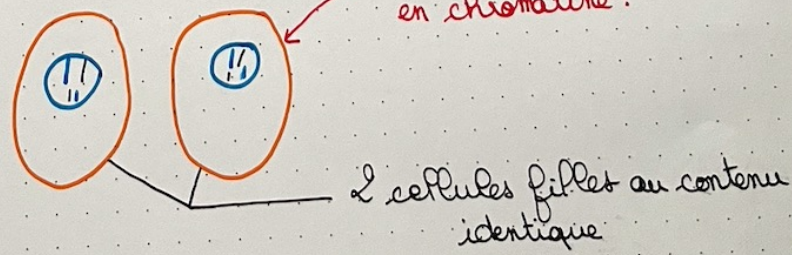 en chromatine.
2 cellules filles au contenu
identique